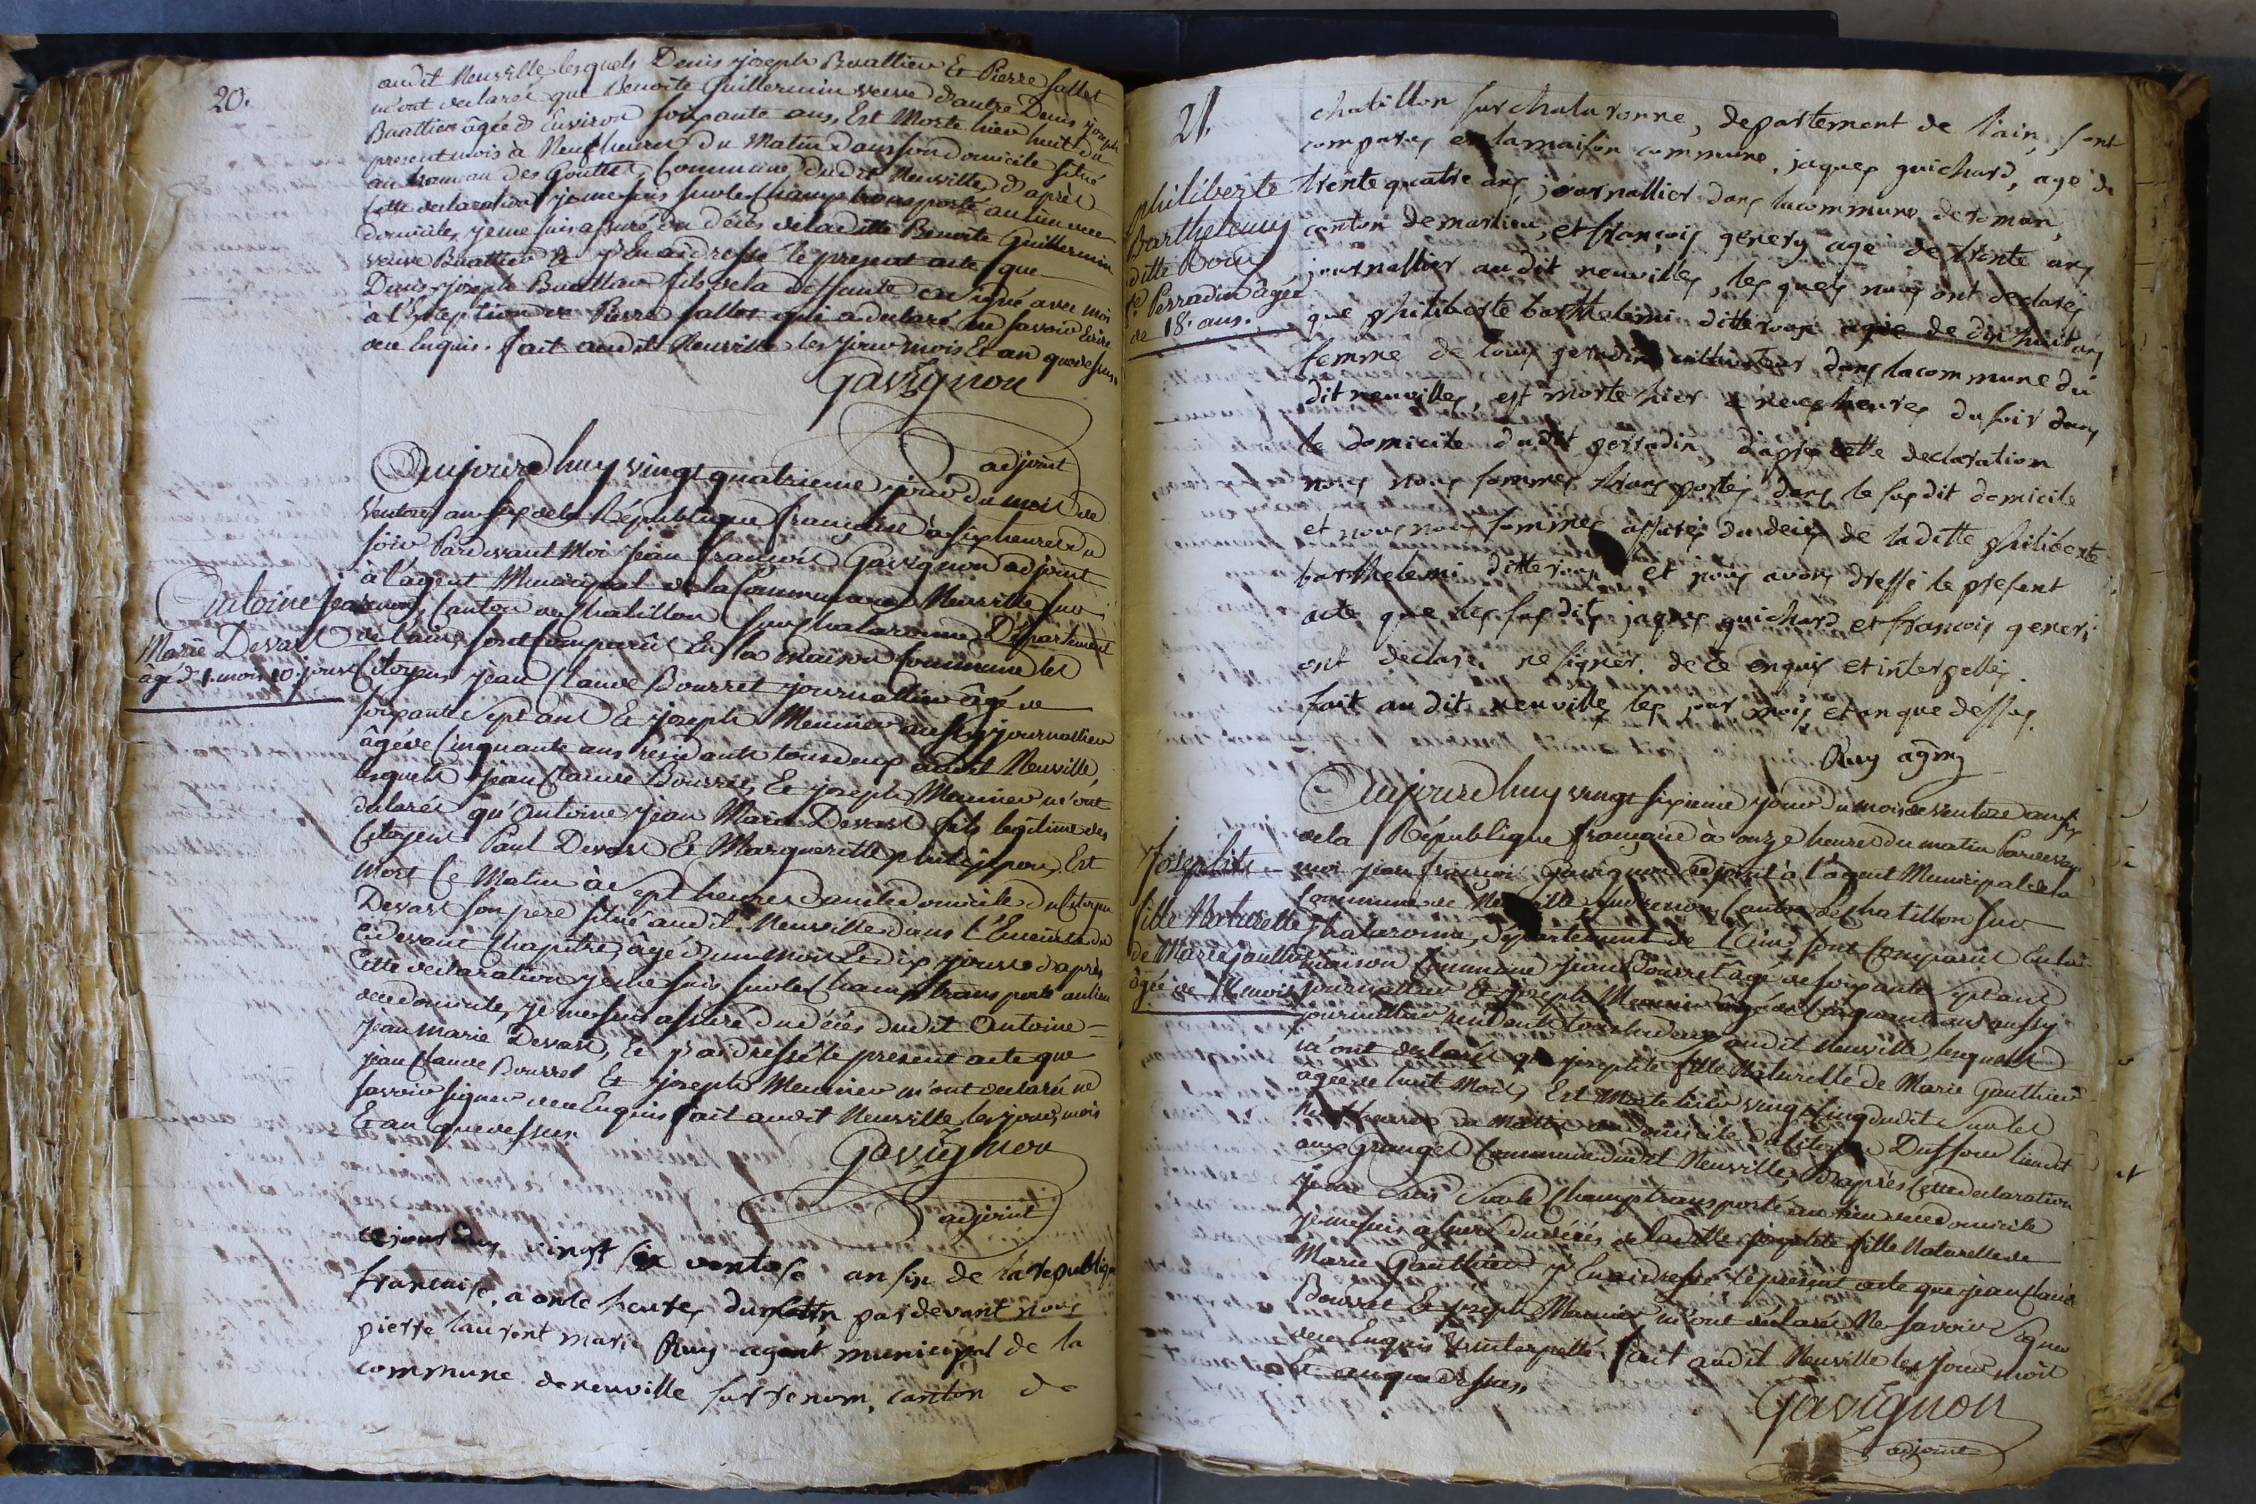 20.
audit Neuville, lesquels Denis joseph Buattier Et Pierre Sallet
m'ont declarés que Benoite Guillermin veuve d'autre Denis joseph
Buattier âgée d'Environ soixante ans, Est Morte hier huit du
present mois à Neuf heures du Matin dans son domicile situé
au hameau des Gouttes, Commune dudit Neuville d'après
Cette declaration je me suis sur le Champ transporté au lieu
domicile, je me suis assuré du décès de laditte Benoite Guillermin
veuve Buattier Et j'En ai dressé le present acte que
Denis joseph Buattier fils de la deffunte a signé avec moi
à l'Exception de Pierre Sallet qui a declaré ne savoir Ecrire
de ce Enquis. fait audit Neuville les jour mois Et an que dessus.
Gavignon
adjoint
Antoine jean
Marie Devart
âgé d'1. mois 10. jours
Aujourd'huy vingt quatrieme jour du mois de
Ventose an six de la République française à six heures du
soir Pardevant Moi jean françois Gavignon adjoint
à l'agent Municipal de la Commune de Neuville sur
renom, Canton de Chatillon sur Chalaronne Département
de l'ain, sont Comparûs En la maison Commune les
Citoyens jean Claude Bourret journallier âgé de
soixante Sept ans Et joseph Meunier aussy journallier
âgé de Cinquante ans residants tous deux audit Neuville,
lesquels jean Claude Bourret, Et joseph Meunier m'ont
declarés qu'Antoine jean Marie Devart fils legitime des
Citoyens Paul Devart Et Margueritte philippon, Est
Mort Ce Matin à Sept heures dans le domicile du Citoyen
Devart son pere situé audit Neuville dans l'Enceinte du
cidevant Chapitre, agé d'un mois Et dix jours d'après
Cette declaration je me suis sur le Champ transporté au lieu
dudomicile, je me suis assuré du décès dudit Antoine =
jean marie Devart, Et j'ai dressé le present acte que
jean Claude Bourret Et joseph Meunier m'ont declaré ne
savoir signer de ce Enquis fait audit Neuville les jour, mois
Et an que dessus
Gavignon
adjoint
cejourd'huy vingt six ventose an six de la republique
francaise, a onze heures dumatin pardevant nous
pierre laurent marie Ruy agent municipal de la
commune de neuville sur renom, canton de
21.
chatillon sur chalaronne, departement de l'ain, sont
comparus en la maison commune, jaques guichard, agé de
trente quatre ans, journallier dans la commune de roman,
canton de marlieu, et françois genery agé de trente ans
journallier au dit neuville, les quels nous ont declarés
que philiberte barthelemi ditte roux agée de dix huit ans
femme de louis perradin cultivateur dans la commune du
dit neuville, est morte hier à neuf heures du soir dans
le domicile du dit perradin, d'apres cette declaration
nous nous sommes transportés dans le susdit domicile
et nous nous sommes assurés du deces de laditte philiberte
barthelemi ditte roux et nous avons dressé le present
acte que les susdits jaques guichard et francois generi
ont declaré ne signer de ce enquis et interpellés.
fait au dit neuville les jour mois et an que dessus.
Ruy agm
philiberte
Barthelemy
ditte Roux
fe. Perradin âgée
de 18. ans.
Aujourd'huy vingt sixieme jour du mois de ventose an six
de la République française à onze heures du matin Pardevant
moi jean françois Gavignon adjoint à l'agent Municipal de la
Commune de Neuville sur renom, Canton de Chatillon sur
Chalaronne, département de l'ain, sont Comparûs En la
maison Commune jean Bourret âgé de soixante Sept ans
journallier Et joseph Meunier âgé de Cinquante ans aussy
journallier residants tous les deux audit Neuville, lesquels
m'ont declarés que josephte fille Naturelle de Marie Gauthier
âgée de huit Mois, Est Morte hier vingt Cinq dudit Sur les
huit heures du matin au domicile du Citoyen Dufour lieudit
aux granges Commune dudit Neuville, D'après Cette declaration
je me suis Sur le Champ transporté au lieu dudomicile
je me suis assuré du décès de laditte josephte fille Naturelle de
Marie Gauthier Et j'En ai dressé le present acte que jean Claude
Bourret Et joseph Meunier m'ont déclarés Ne Savoir Signer
de ce Enquis Et interpellés. fait audit Neuville les jour mois
Et an que dessus.
Gavignon
adjoint
josephte
fille Naturelle
de Marie Gauthier
âgée de 8 mois